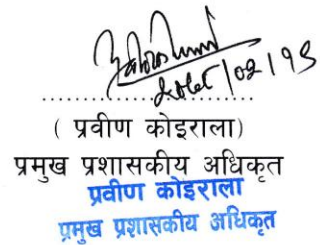 ( प्रवीण कोइराला)
प्रमुख प्रशासकीय अधिकृत
प्रवीण कोइराला
प्रमुख प्रशासकीय अधिकृत